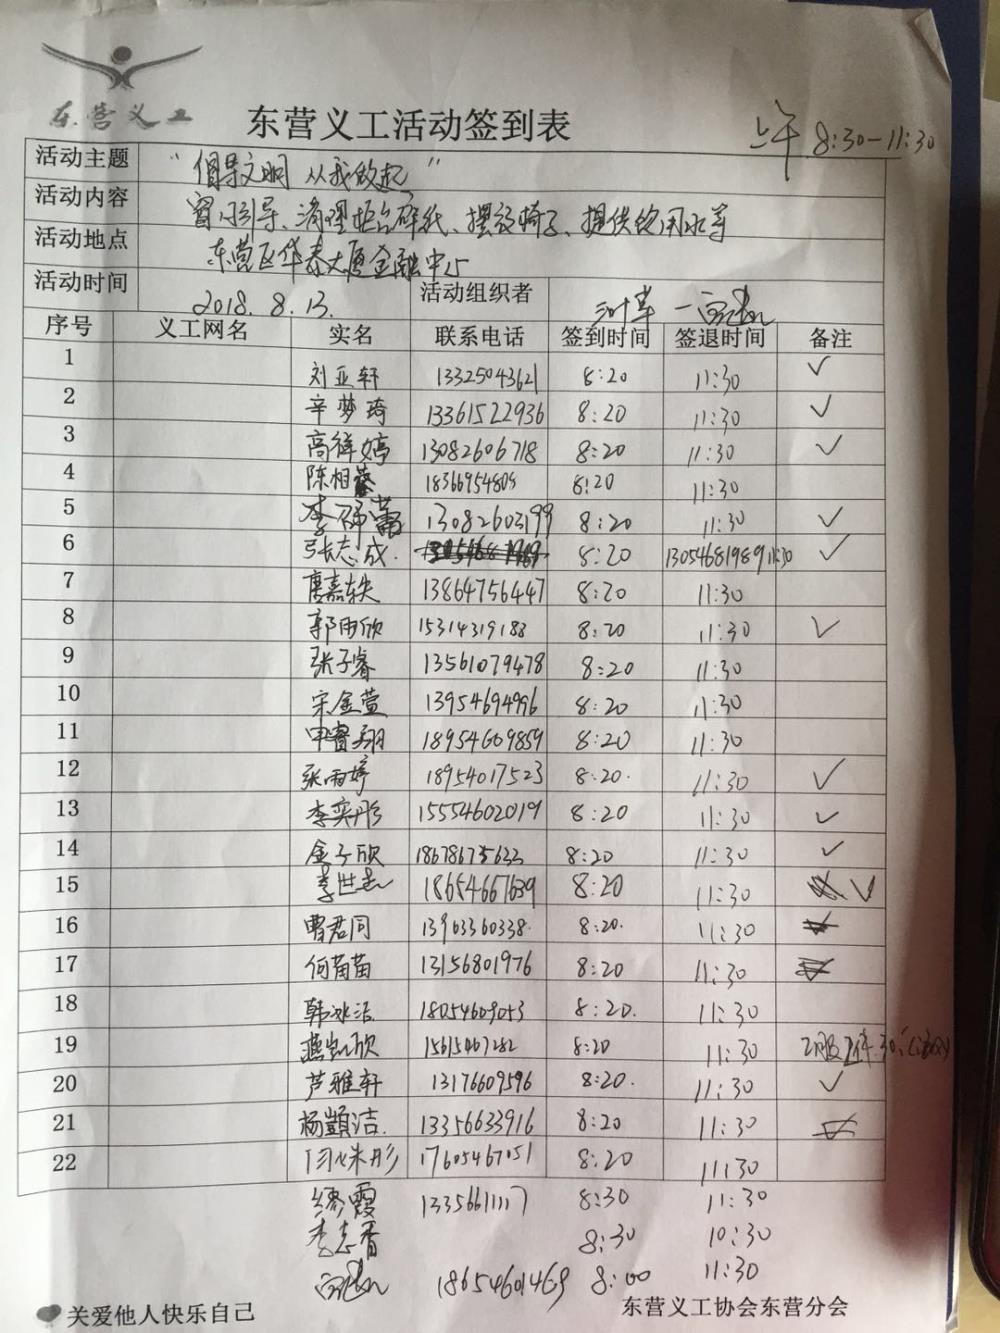 东营义工
东营义工活动签到表
上午 8:30-11:30
活动主题 "倡导文明 从我做起"
活动内容 窗口引导、清理柜台碎纸、摆放椅子、提供饮用水等
活动地点 东营区华泰大厦金融中心
活动时间 2018.8.13. 活动组织者
序号 义工网名 实名 联系电话 签到时间 签退时间 备注
1 刘亚轩 13325043621 8:20 11:30 ✓
2 辛梦琦 13361522936 8:20 11:30 ✓
3 高祥婷 13082606718 8:20 11:30 ✓
4 陈相蓉 18366954809 8:20 11:30
5 李研蕾 13082603199 8:20 11:30 ✓
6 张志成. 8:20 13054681989 11:30 ✓
7 唐嘉轶 13864756447 8:20 11:30
8 郭雨欣 15314319188 8:20 11:30 ✓
9 张子睿 13561079478 8:20 11:30
10 宋金萱 13954694996 8:20 11:30
11 申睿翔 18954609859 8:20 11:30
12 张雨婷 18954017523 8:20. 11:30 ✓
13 李奕彤 15554602019 8:20 11:30 ✓
14 金子欣 18678675633 8:20 11:30 ✓
15 李世 18654667639 8:20 11:30 ✓
16 曹君同 13963360338. 8:20. 11:30
17 何苗苗 13156801976 8:20 11:30
18 韩冰洁 18054609053 8:20. 11:30
19 燕凯欣 15615467282 8:20 11:30
20 芦雅轩 13176609596 8:20. 11:30 ✓
21 杨顗洁. 13356633916 8:20 11:30
22 闫姝彤 17605467051 8:20 11:30
缪霞 13356611117 8:30 11:30
李志香 8:30 10:30
18654601469 8:00 11:30
关爱他人快乐自己 东营义工协会东营分会